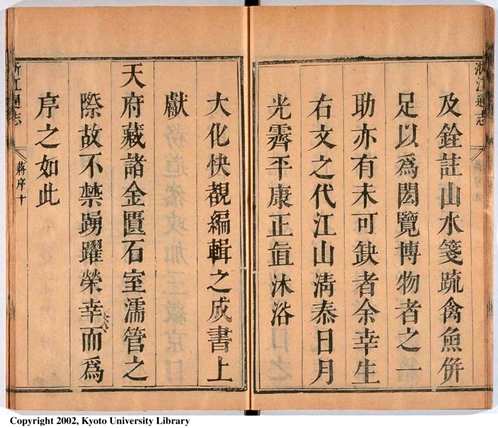 浙江通志
及詮註山水箋疏禽魚併
足以爲閎覽博物者之一
助亦有未可缺者余幸生
右文之代江山淸泰日月
光霽平康正直沐浴
大化快覩編輯之成書上
獻
天府藏諸金匱石室濡管之
際故不禁踴躍榮幸而爲
序之如此
浙江通志
蔣序十
Copyright 2002, Kyoto University Library